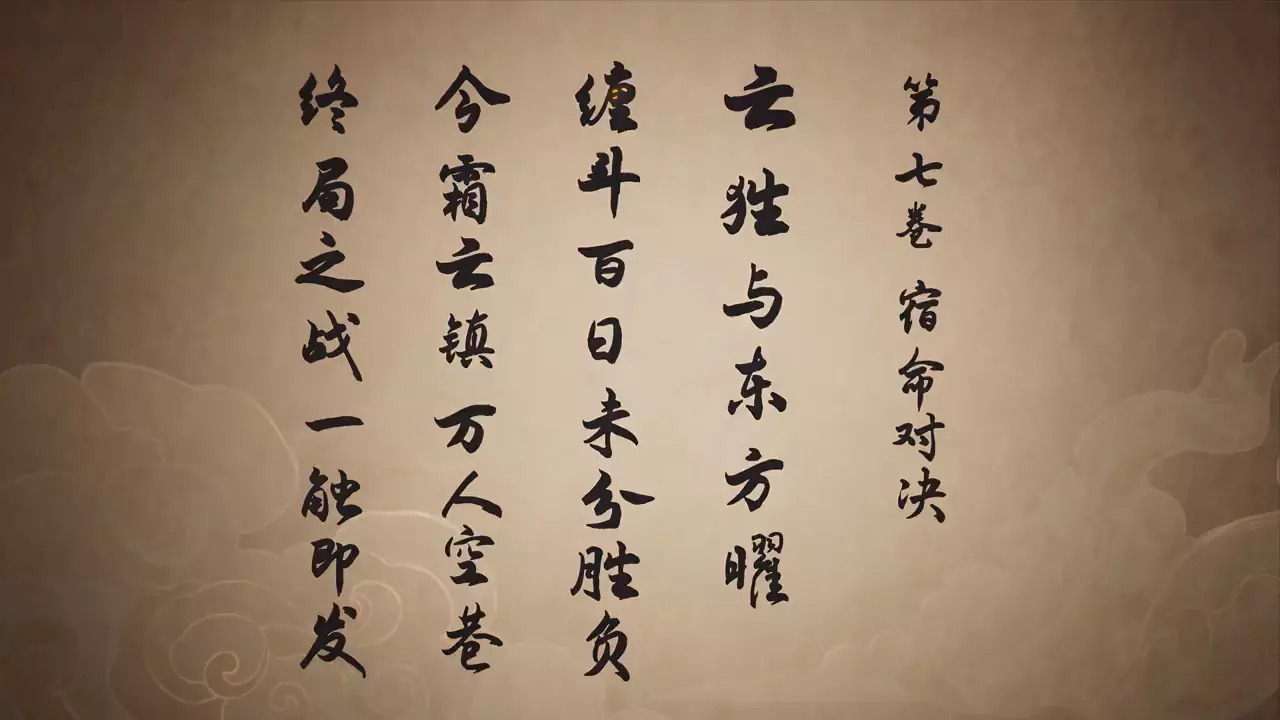 第七卷 宿命对决
云狌与东方曜
缠斗百日未分胜负
今霜云镇万人空巷
终局之战一触即发